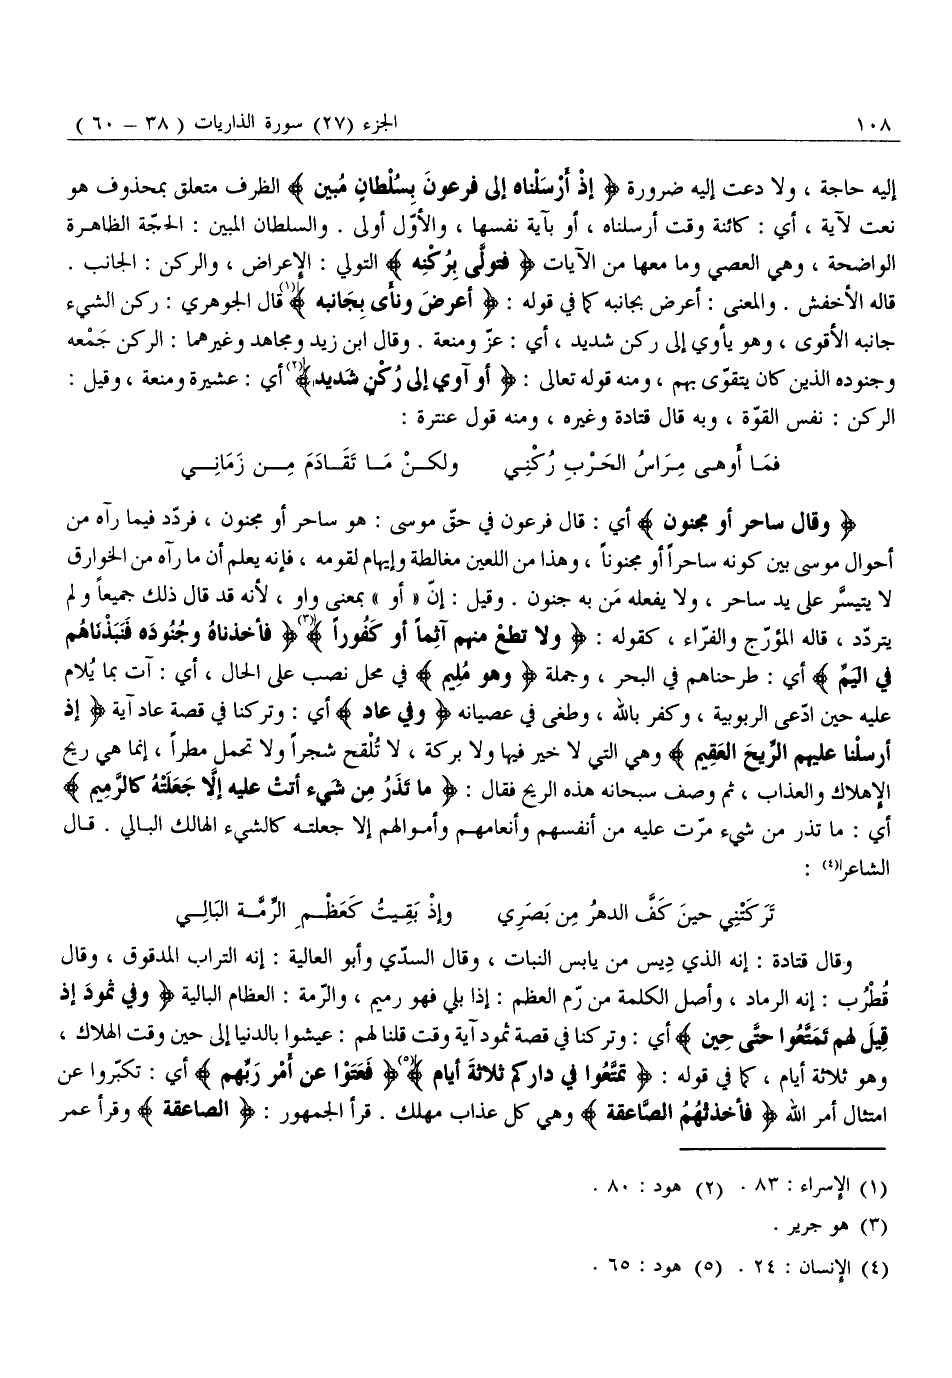 ١٠٨ الجزء (٢٧) سورة الذاريات ( ٣٨ – ٦٠ )
إليه حاجة ، ولا دعت إليه ضرورة ﴿ إذْ أَرْسَلْناه إلى فرعونَ بِسُلْطانٍ مُبين ﴾ الظرف متعلق بمحذوف هو
نعت لآية ، أي : كائنة وقت أرسلناه ، أو بآية نفسها ، والأوّل أولى . والسلطان المبين : الحجّة الظاهرة
الواضحة ، وهي العصي وما معها من الآيات ﴿ فتولَّى بِرُكْنِه ﴾ التولي : الإعراض ، والركن : الجانب .
قاله الأخفش . والمعنى : أعرض بجانبه كما في قوله : ﴿ أعرضَ ونأى بِجَانبه ﴾(١) قال الجوهري : ركن الشيء
جانبه الأقوى ، وهو يأوي إلى ركن شديد ، أي : عزّ ومنعة . وقال ابن زيد ومجاهد وغيرهما : الركن جَمْعه
وجنوده الذين كان يتقوّى بهم ، ومنه قوله تعالى : ﴿ أو آوي إلى رُكْنٍ شَديد ﴾(٢) أي : عشيرة ومنعة ، وقيل :
الركن : نفس القوّة ، وبه قال قتادة وغيره ، ومنه قول عنترة :
فمَا أَوهى مِرَاسُ الحَرْبِ رُكْنِي ولكنْ مَا تَقَادَمَ مِن زَمَانِي
﴿ وقال ساحر أو مجنون ﴾ أي : قال فرعون في حقّ موسى : هو ساحر أو مجنون ، فردّد فيما رآه من
أحوال موسى بين كونه ساحراً أو مجنوناً ، وهذا من اللعين مغالطة وإيهام لقومه ، فإنه يعلم أن ما رآه من الخوارق
لا يتيسَّر على يد ساحر ، ولا يفعله مَن به جنون . وقيل : إنّ « أو » بمعنى واو ، لأنه قد قال ذلك جميعاً ولم
يتردّد ، قاله المؤرّج والفرّاء ، كقوله : ﴿ ولا تطعْ منهم آثِماً أو كَفُوراً ﴾(٣) ﴿ فأخذناهُ وجُنُودَه فَنَبَذْناهُم
في اليَمِّ ﴾ أي : طرحناهم في البحر ، وجملة ﴿ وهو مُلِيم ﴾ في محل نصب على الحال ، أي : آت بما يُلام
عليه حين ادّعى الربوبية ، وكفر بالله ، وطغى في عصيانه ﴿ وفي عاد ﴾ أي : وتركنا في قصة عاد آية ﴿ إذ
أرسلْنا عليهم الرِّيحَ العَقِيم ﴾ وهي التي لا خير فيها ولا بركة ، لا تُلْقح شجراً ولا تحمل مطراً ، إنما هي ريح
الإهلاك والعذاب ، ثم وصف سبحانه هذه الريح فقال : ﴿ ما تَذَرُ مِن شيء أتتْ عليه إلَّا جَعَلَتْهُ كالرَّمِيم ﴾
أي : ما تذر من شيء مرّت عليه من أنفسهم وأنعامهم وأموالهم إلا جعلته كالشيء الهالك البالي . قال
الشاعر(٤) :
تَرَكَتْنِي حينَ كَفَّ الدهرُ مِن بَصَرِي وإذْ بَقِيتُ كَعَظْمِ الرِّمَّة البَالِي
وقال قتادة : إنه الذي دِيس من يابس النبات ، وقال السدّي وأبو العالية : إنه التراب المدقوق ، وقال
قُطْرُب : إنه الرماد ، وأصل الكلمة من رّم العظم : إذا بلي فهو رميم ، والرّمة : العظام البالية ﴿ وفي ثمودَ إذ
قِيلَ لهم تَمَتَّعُوا حتَّى حِين ﴾ أي : وتركنا في قصة ثمود آية وقت قلنا لهم : عيشوا بالدنيا إلى حين وقت الهلاك ،
وهو ثلاثة أيام ، كما في قوله : ﴿ تمتَّعُوا في داركم ثلاثةَ أيام ﴾(٥) ﴿ فَعَتَوْا عن أَمْر رَبِّهم ﴾ أي : تكبّروا عن
امتثال أمر الله ﴿ فأخذتْهُمُ الصَّاعقة ﴾ وهي كل عذاب مهلك . قرأ الجمهور : ﴿ الصاعقة ﴾ وقرأ عمر
(١) الإسراء : ٨٣ . (٢) هود : ٨٠ .
(٣) هو جرير .
(٤) الإنسان : ٢٤ . (٥) هود : ٦٥ .